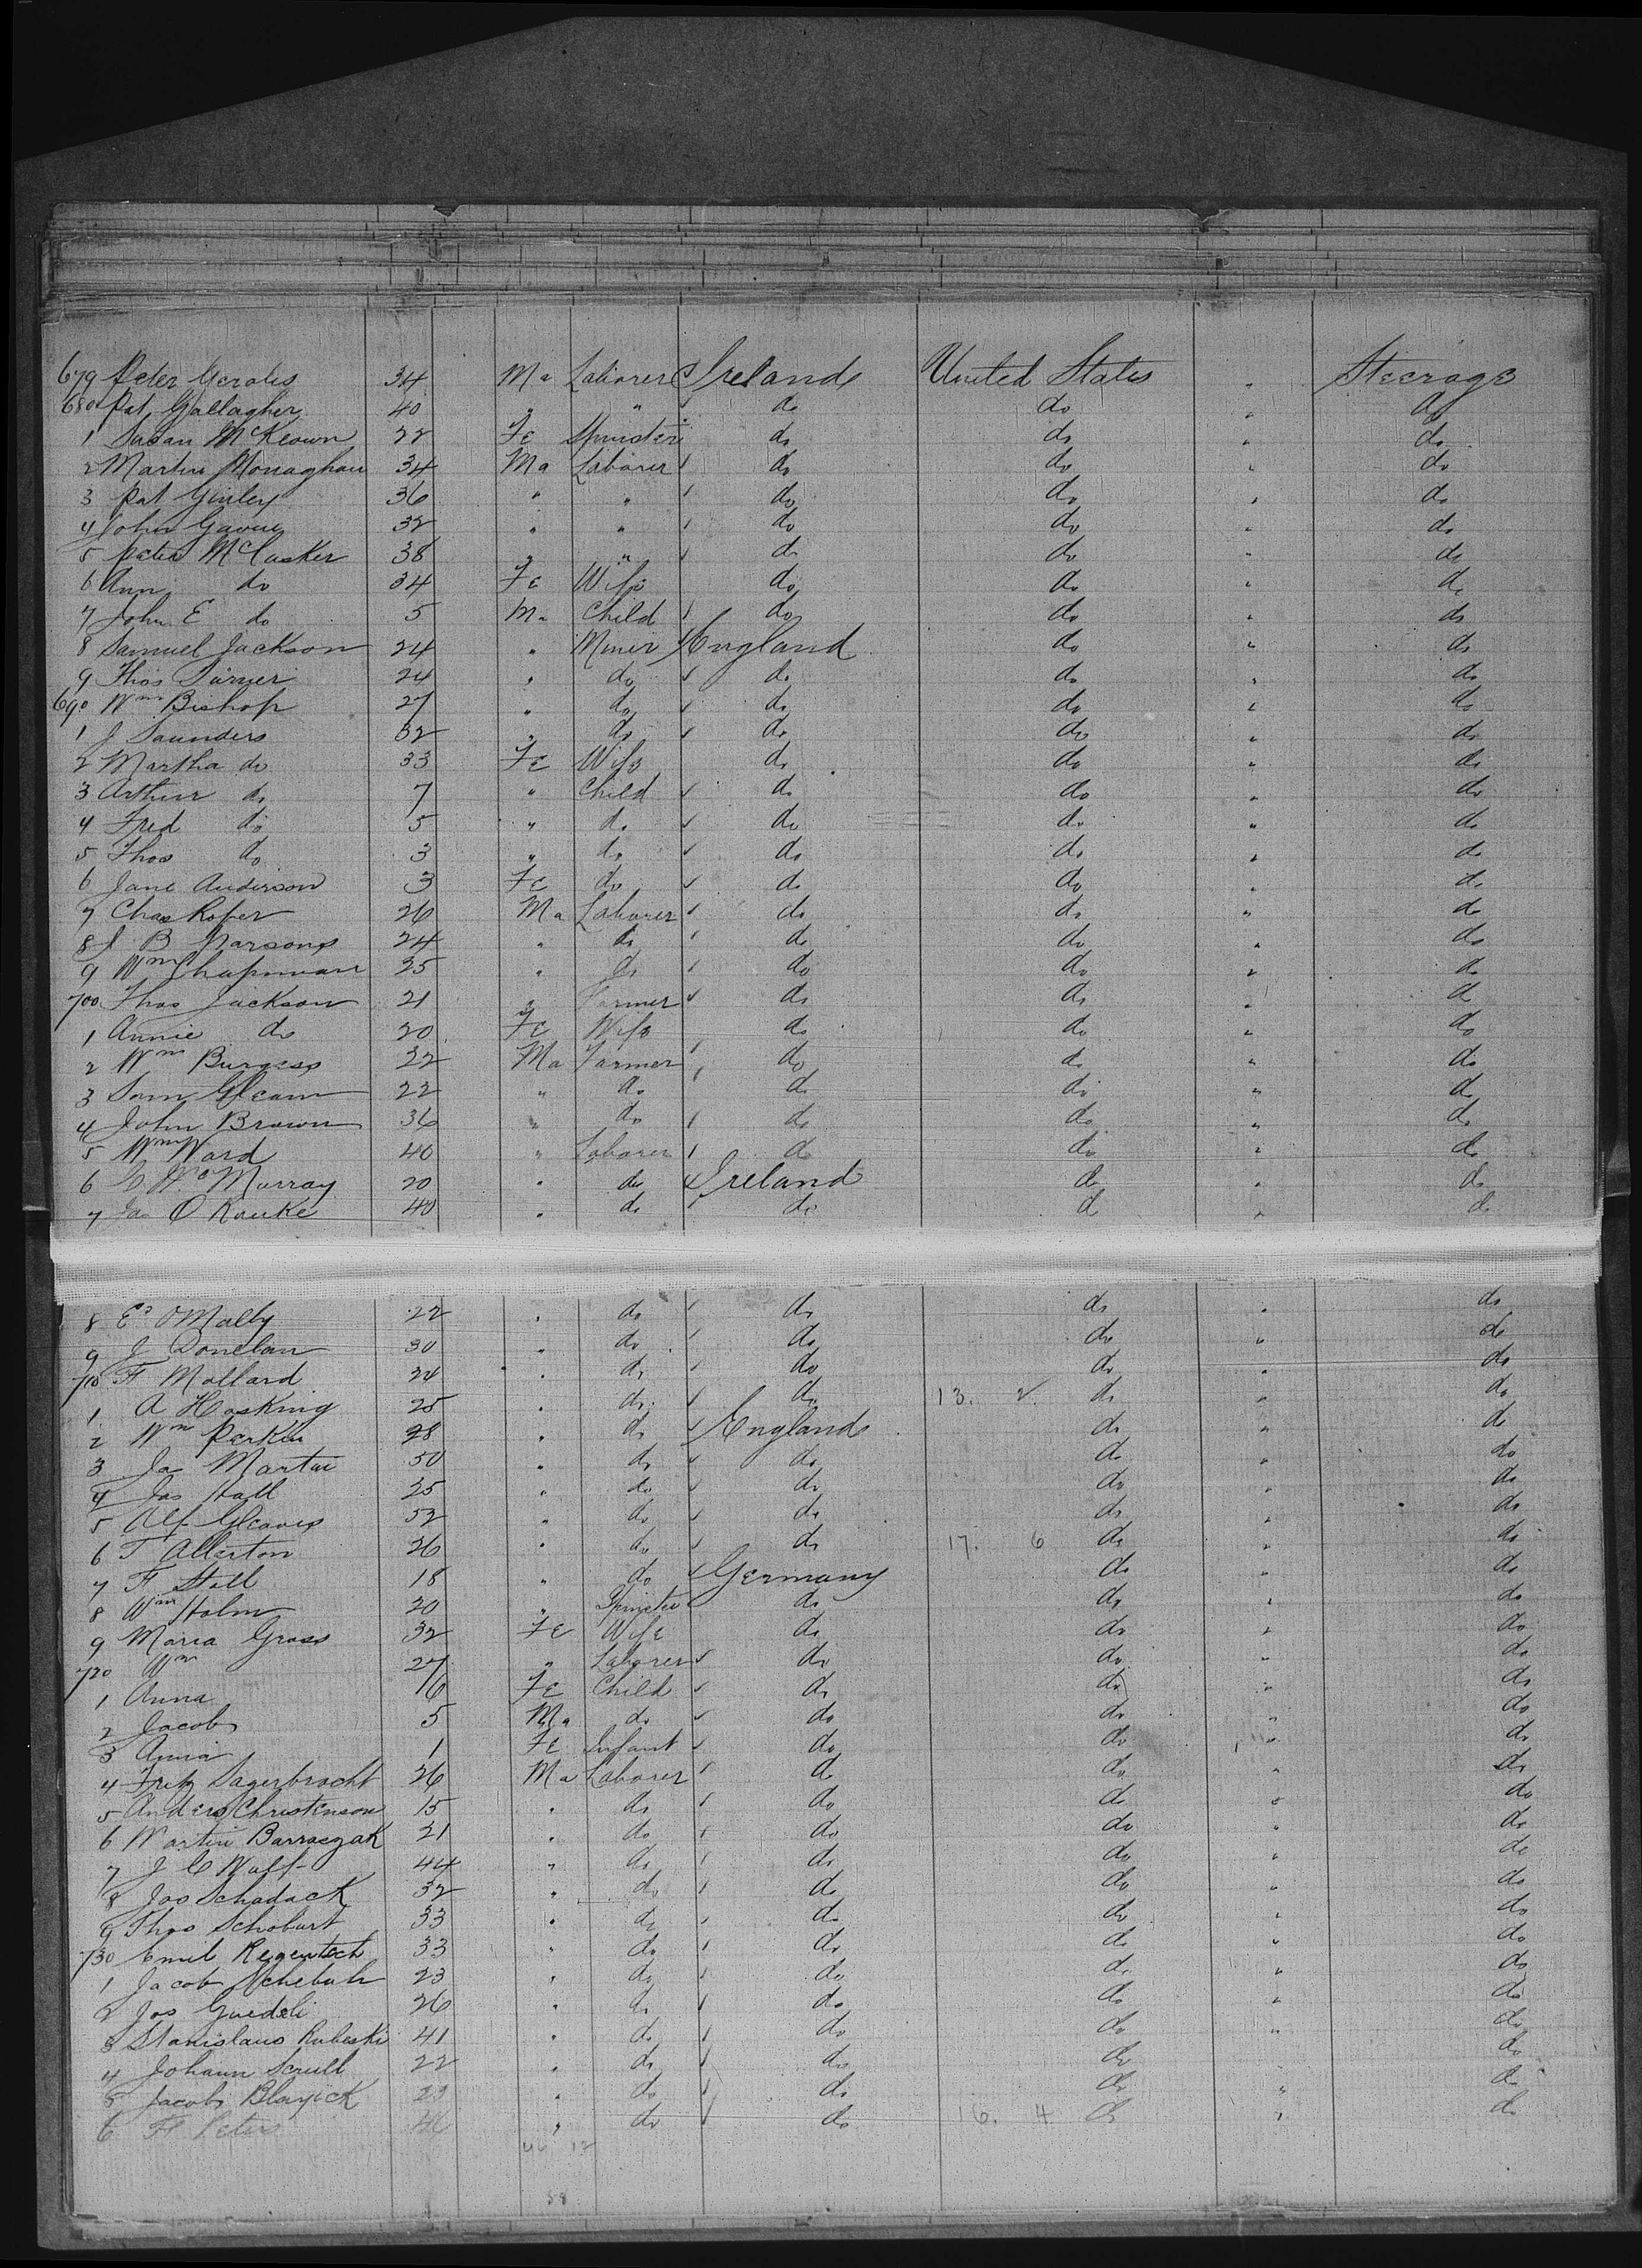 679 Peter 34 Ma Laborer Ireland United States " Steerage
680 Pat Gallagher 40 " " do do " do
1 Susan McKeown 22 Fe Spinster do do " do
2 Martin Monaghan 34 Ma Laborer do do " do
3 Pat Ginley 36 " " do do " do
4 John Gavin 32 " " do do " do
5 Peter McCusker 38 " " do do " do
6 Ann do 34 Fe Wife do do " do
7 John E do 5 Ma Child do do " do
8 Samuel Jackson 24 " Miner England do " do
9 Thos Turner 24 " do do do " do
690 Wm Bishop 27 " do do do " do
1 J Saunders 32 " do do do " do
2 Martha do 33 Fe Wife do do " do
3 Arthur do 7 " Child do do " do
4 Fred do 5 " do do do " do
5 Thos do 3 " do do do " do
6 Jane Anderson 3 Fe do do do " do
7 Chas Roper 26 Ma Laborer do do " do
8 J B Parsons 24 " do do do " do
9 Wm Chapman 25 " do do do " do
700 Thos Jackson 21 " Farmer do do " do
1 Annie do 20 Fe Wife do do " do
2 Wm Burgess 22 Ma Farmer do do " do
3 Sam 22 " do do do " do
4 John Brown 36 " do do do " do
5 Wm Ward 40 " Laborer do do " do
6 Murray 20 " do Ireland do " do
7 Jas O Rouke 40 " do do do " do
8 Ed OMally 22 " do do do " do
9 J Donelan 30 " do do do " do
710 F Mollard 24 " do do do " do
1 A Hosking 25 " do do 13. 2. do " do
2 Wm Perkin 28 " do England do " do
3 Ja Martin 50 " do do do " do
4 Jas Hall 25 " do do do " do
5 Alf Gleaves 52 " do do do " do
6 T Allerton 26 " do do 17. 6 do " do
7 F Stoll 18 " do Germany do " do
8 Wm Holm 20 " Spinster do do " do
9 Maria Gross 32 Fe Wife do do " do
720 Wm 27 " Laborer do do " do
1 Anna 6 Fe Child do do " do
2 Jacob 5 Ma do do do " do
3 Anna 1 Fe Infant do do " do
4 Fritz Sagerbrocht 26 Ma Laborer do do " do
5 Anders Christenson 15 " do do do " do
6 Martin Barraszak 21 " do do do " do
7 J C Wolf 44 " do do do " do
8 Jos Schadack 32 " do do do " do
9 Thos Schobart 33 " do do do " do
730 Emil Regentsch 33 " do do do " do
1 Jacob 23 " do do do " do
2 Jos Guedeli 26 " do do do " do
3 Stanislaus Rubeski 41 " do do do " do
4 Johann Scrull 22 " do do do " do
5 Jacob Blayick 23 " do do do " do
6 F Peters " do do 6. 4 do " do
46 12
58